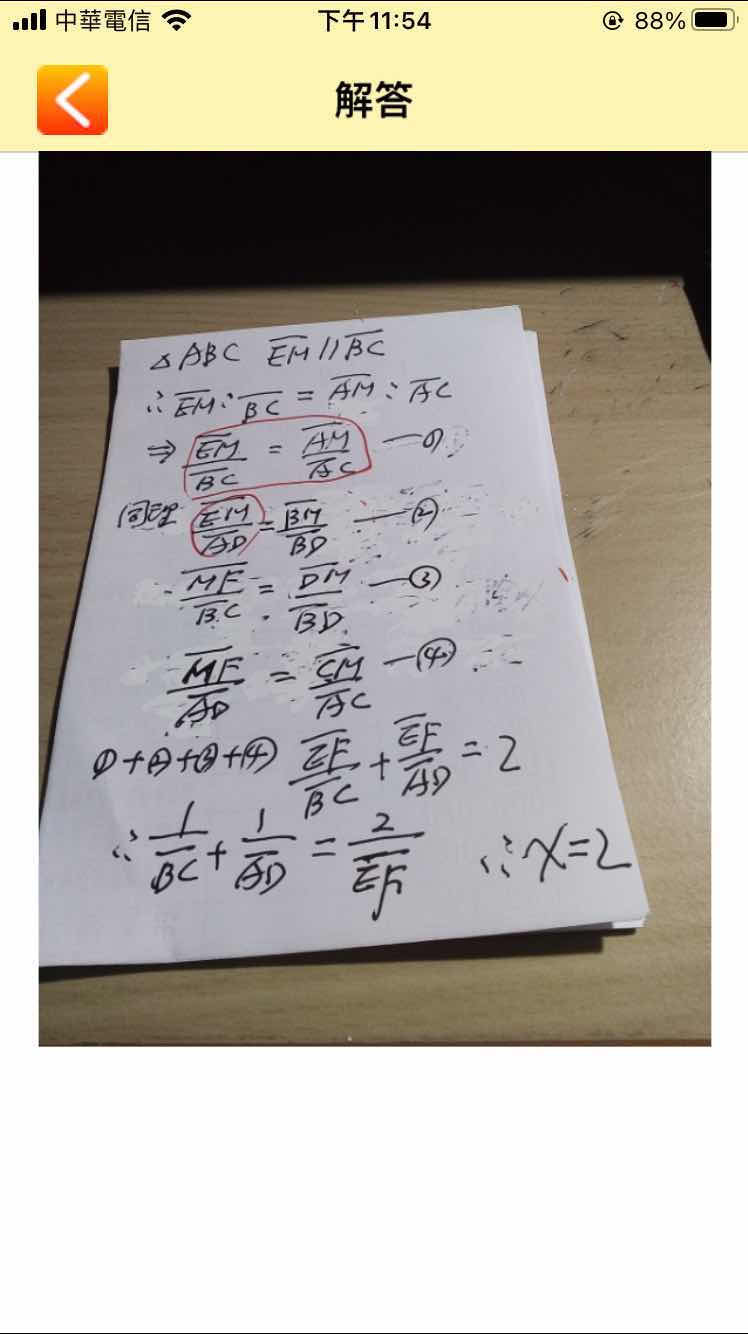 中華電信
下午11:54
88%
解答
△ABC EM // BC
∴ EM : BC = AM : AC
⇒ EM/BC = AM/AC —①
同理 EM/AD = BM/BD —②
MF/BC = DM/BD —③
MF/AD = CM/AC —④
①+②+③+④ EF/BC + EF/AD = 2
∴ 1/BC + 1/AD = 2/EF ∴ x=2